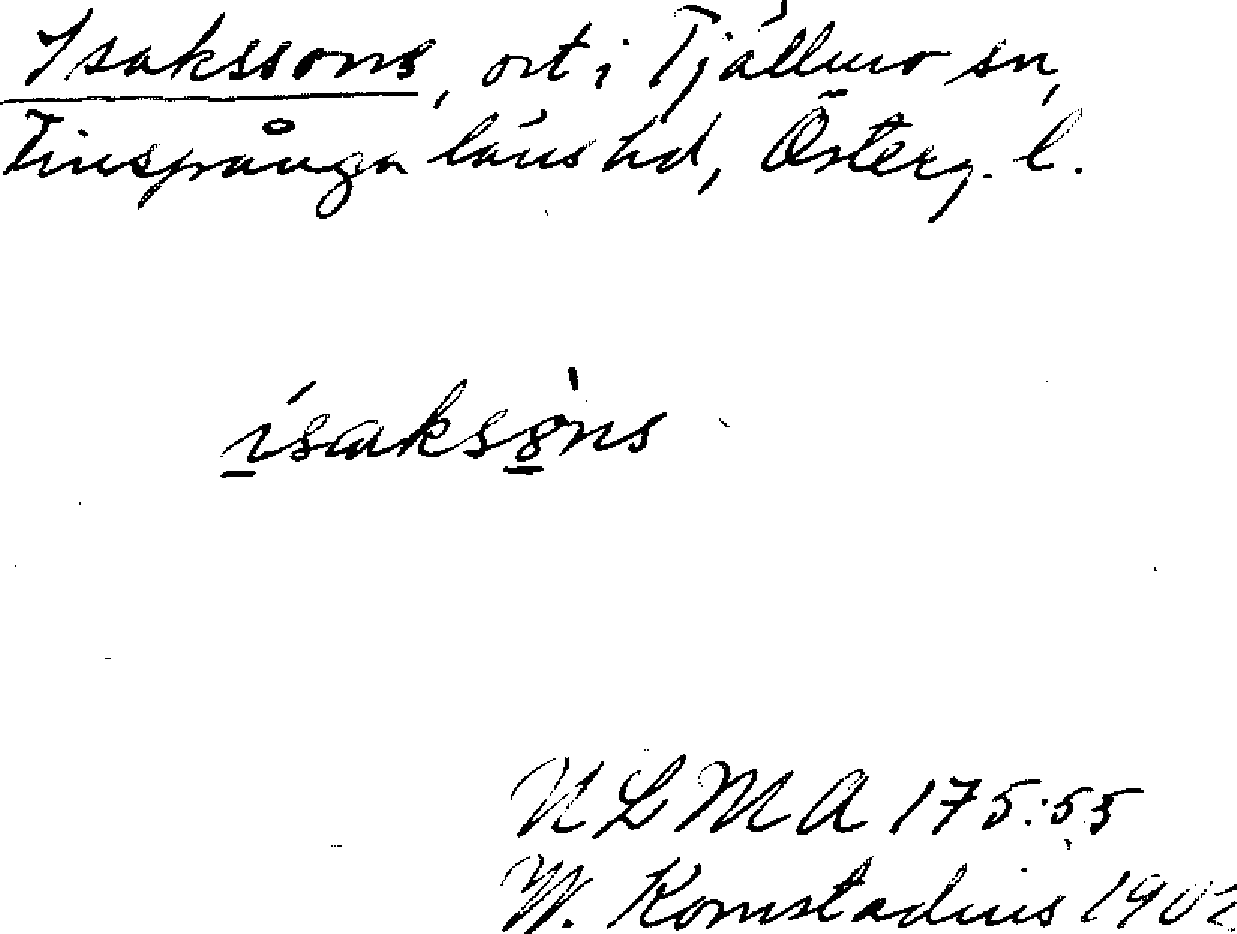 Isakssons, ort i Tjällmo sn,
Finspånga läns hd, Österg. l.
ísaksòns
ULMA 175:55
W. Komstadius 1902